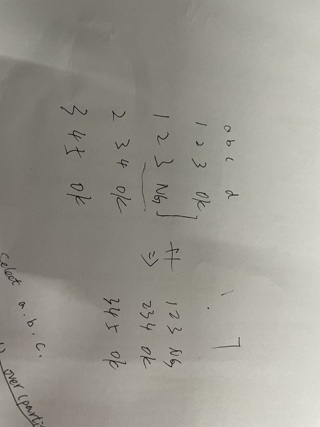 a b c d
1 2 3 OK
1 2 3 NG
2 3 4 OK
3 4 5 OK
⇒
1 2 3 NG
2 3 4 OK
3 4 5 OK
Select a. b. c.
over (parti